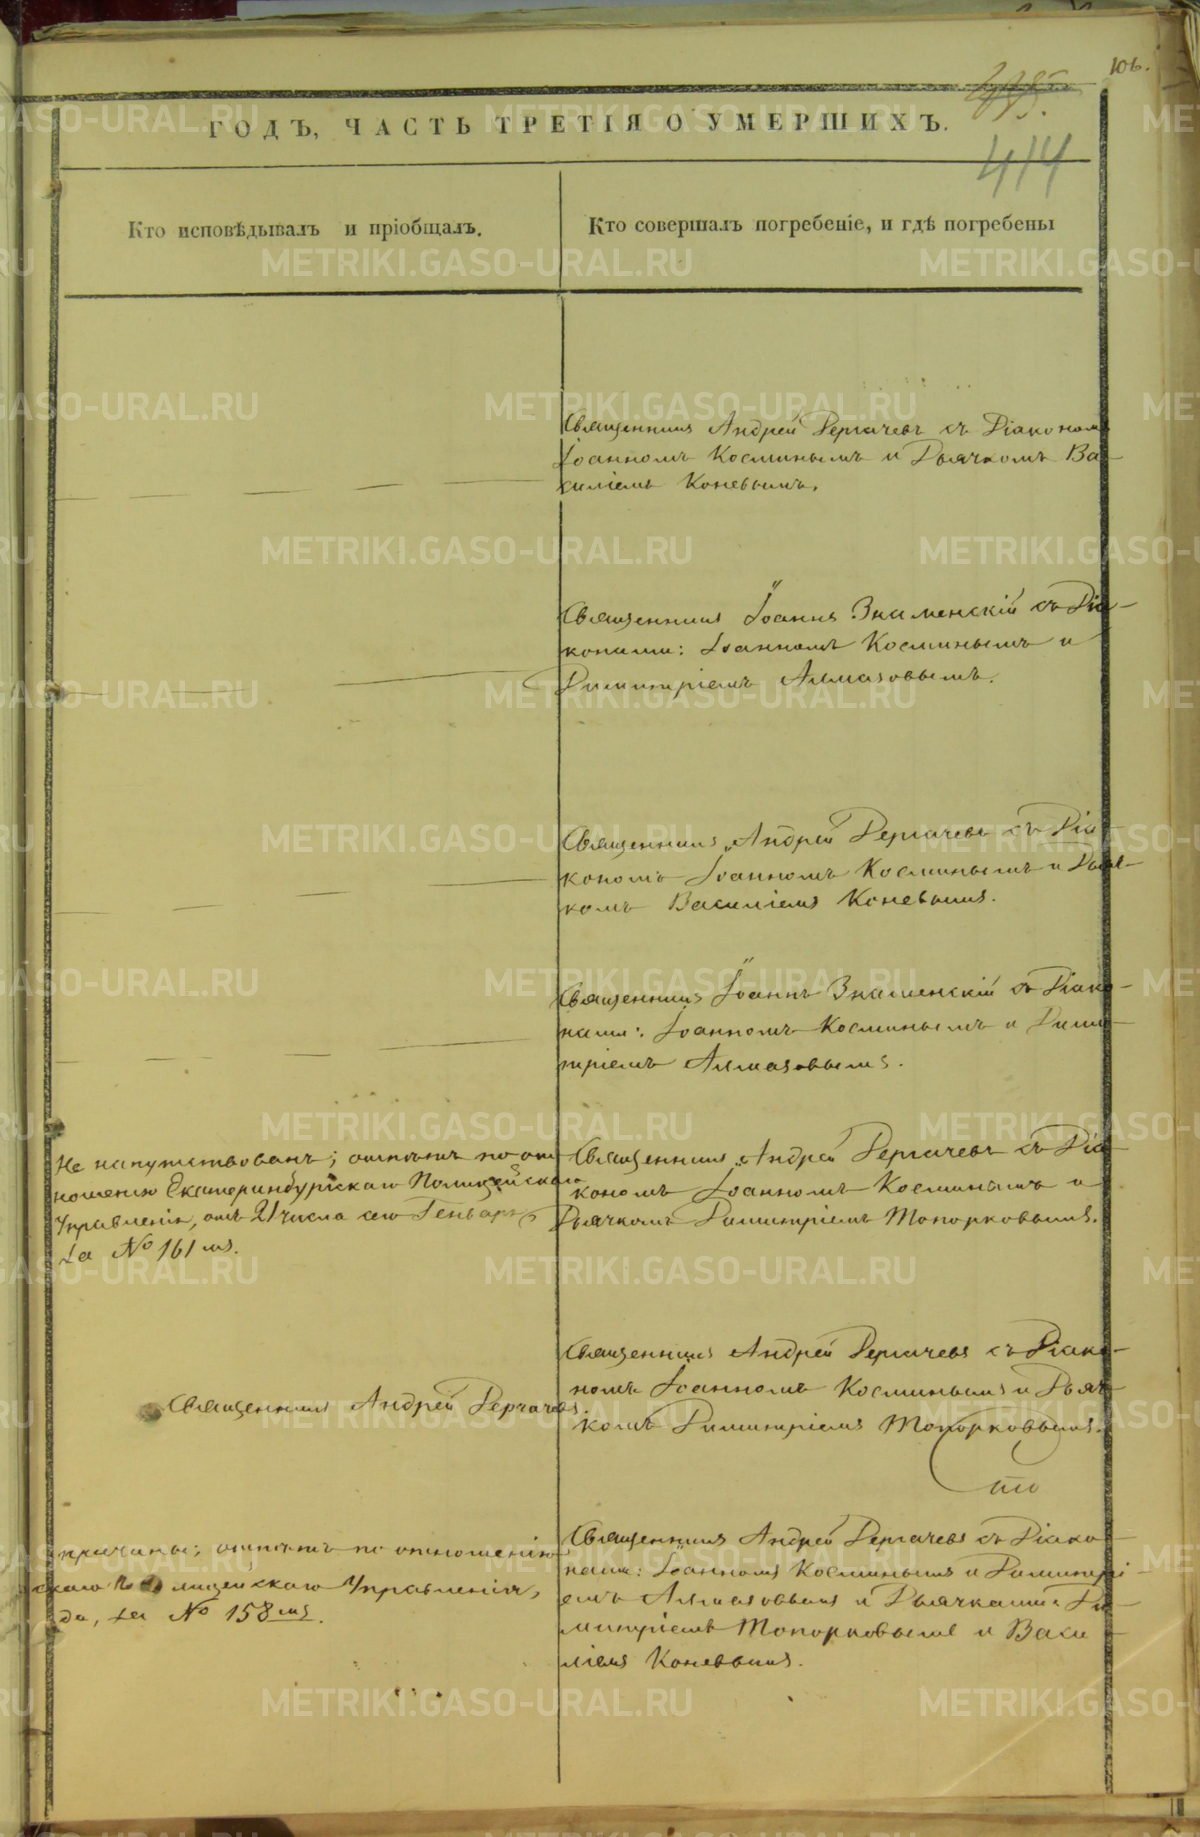 106.
ГОДЪ, ЧАСТЬ ТРЕТІЯ О УМЕРШИХЪ.
414
Кто исповѣдывалъ и пріобщалъ.
Кто совершалъ погребеніе, и гдѣ погребены
Священникъ Андрей Дергачевъ съ Діакономъ
Іоанномъ Косминымъ и Дьячкомъ Ва-
силіемъ Коневымъ.
Священникъ Іоаннъ Знаменскій съ Діа-
конами: Іоанномъ Косминымъ и
Димитріемъ Алмазовымъ.
Священникъ Андрей Дергачевъ съ Діа-
кономъ Іоанномъ Косминымъ и Дьяч-
комъ Василіемъ Коневымъ.
Священникъ Іоаннъ Знаменскій съ Діако-
нами: Іоанномъ Косминымъ и Дими-
тріемъ Алмазовымъ.
Не напутствованъ; отпѣтъ по от-
ношенію Екатеринбургскаго Полицейскаго
Управленія, отъ 21 числа сего Генваря
за № 161мъ.
Священникъ Андрей Дергачевъ съ Діа-
кономъ Іоанномъ Косминымъ и
Дьячкомъ Димитріемъ Топорковымъ.
Священникъ Андрей Дергачевъ.
Священникъ Андрей Дергачевъ съ Діако-
номъ Іоанномъ Косминымъ и Дьяч-
комъ Димитріемъ Топорковымъ.
причины; отпѣтъ по отношенію
скаго Полицейскаго Управленія,
да, за № 158мъ.
Священникъ Андрей Дергачевъ съ Діако-
нами: Іоанномъ Косминымъ и Димитрі-
емъ Алмазовымъ и Дьячками: Ди-
митріемъ Топорковымъ и Васи-
ліемъ Коневымъ.
METRIKI.GASO-URAL.RU